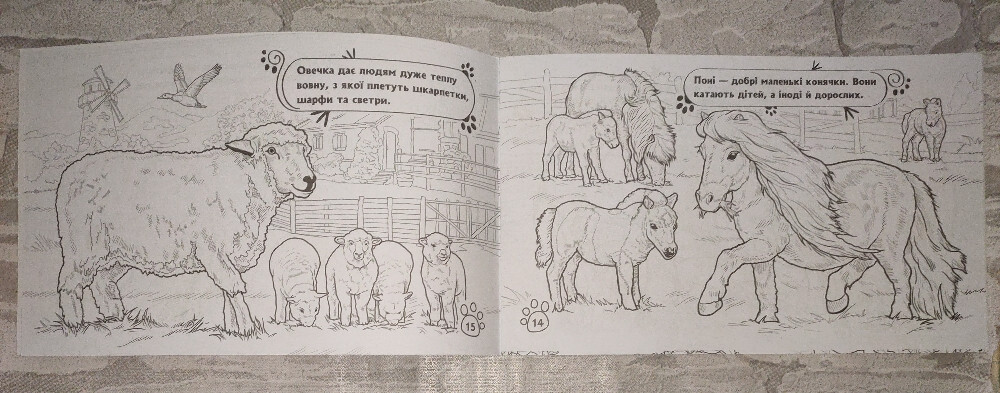 Овечка дає людям дуже теплу
вовну, з якої плетуть шкарпетки,
шарфи та светри.
15
Поні — добрі маленькі конячки. Вони
катають дітей, а іноді й дорослих.
14